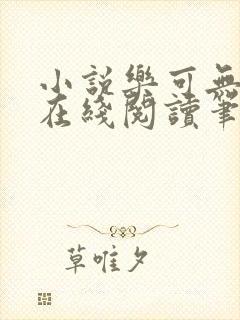 小說樂可無
在綫閱讀筆
草唯夕